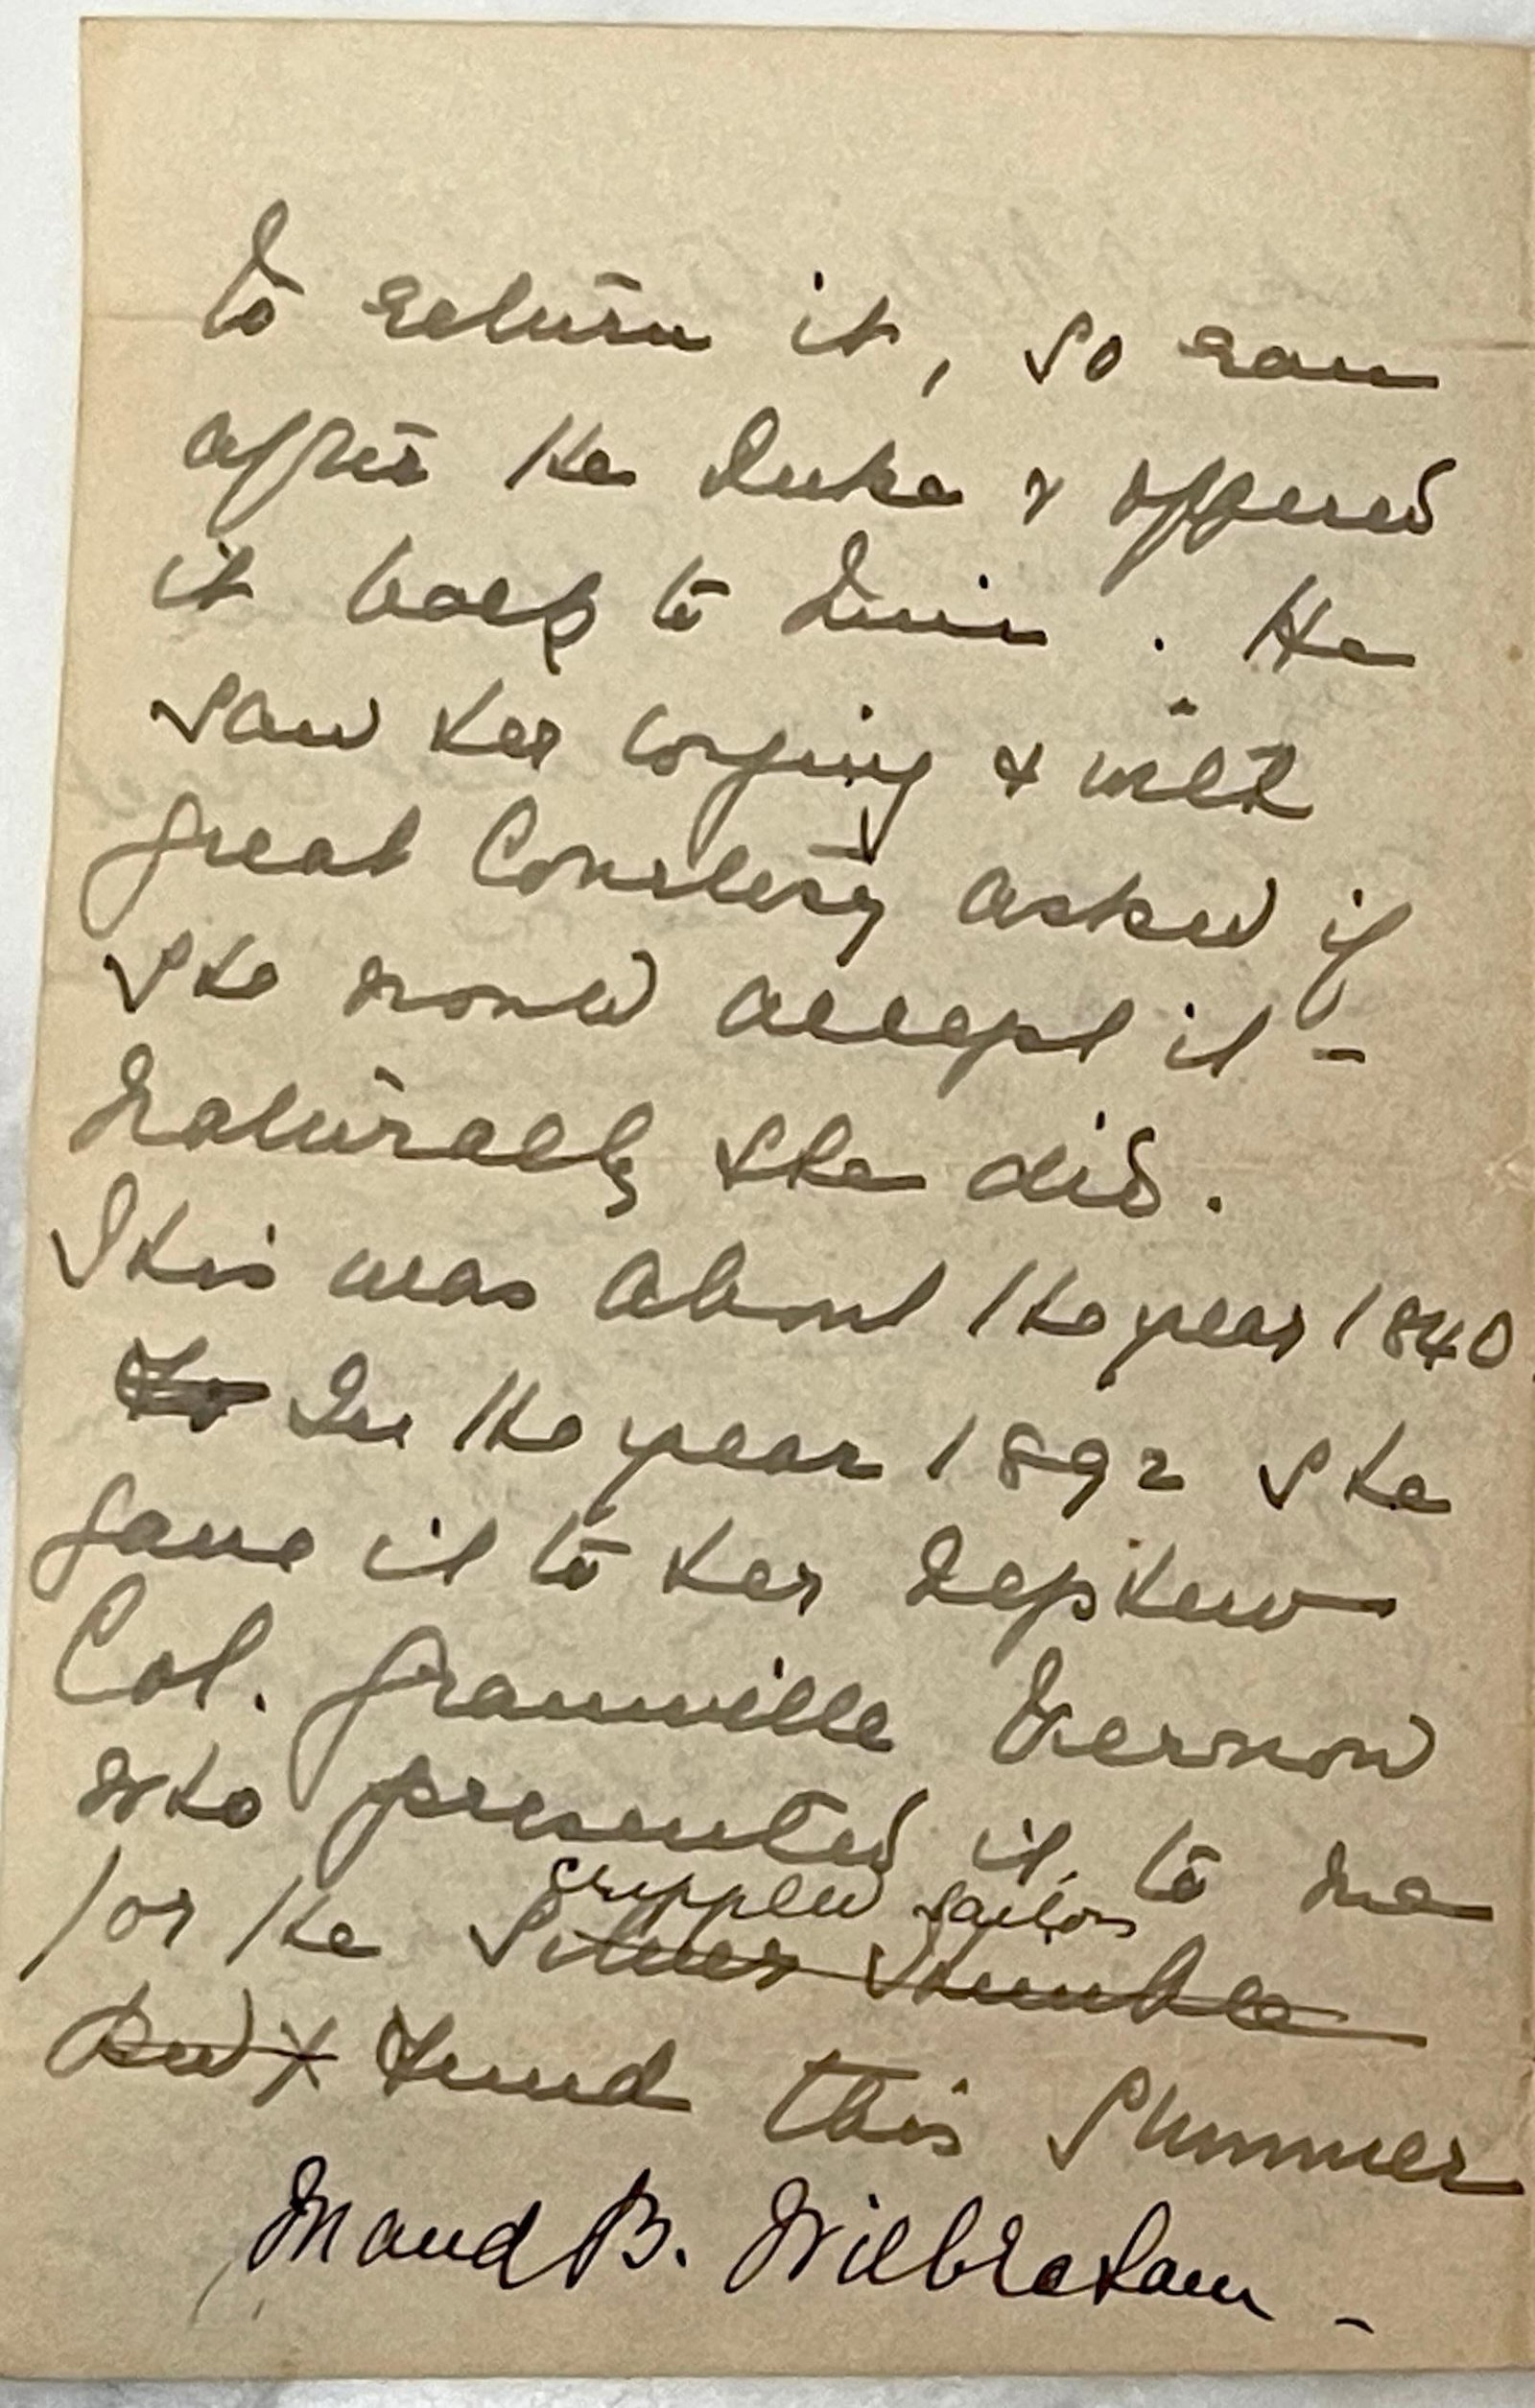 to return it, so ran
after the Duke & offered
it back to him. He
saw her crying & with
great Courtesy asked if
she would accept it -
Naturally she did.
This was about the year 1840.
In the year 1892 she
gave it to her Nephew
Col. Granville Vernon
who presented it to me
crippled sailors
for the Silver Thimble
Red X Fund this Summer
Maud B. Wilbraham -